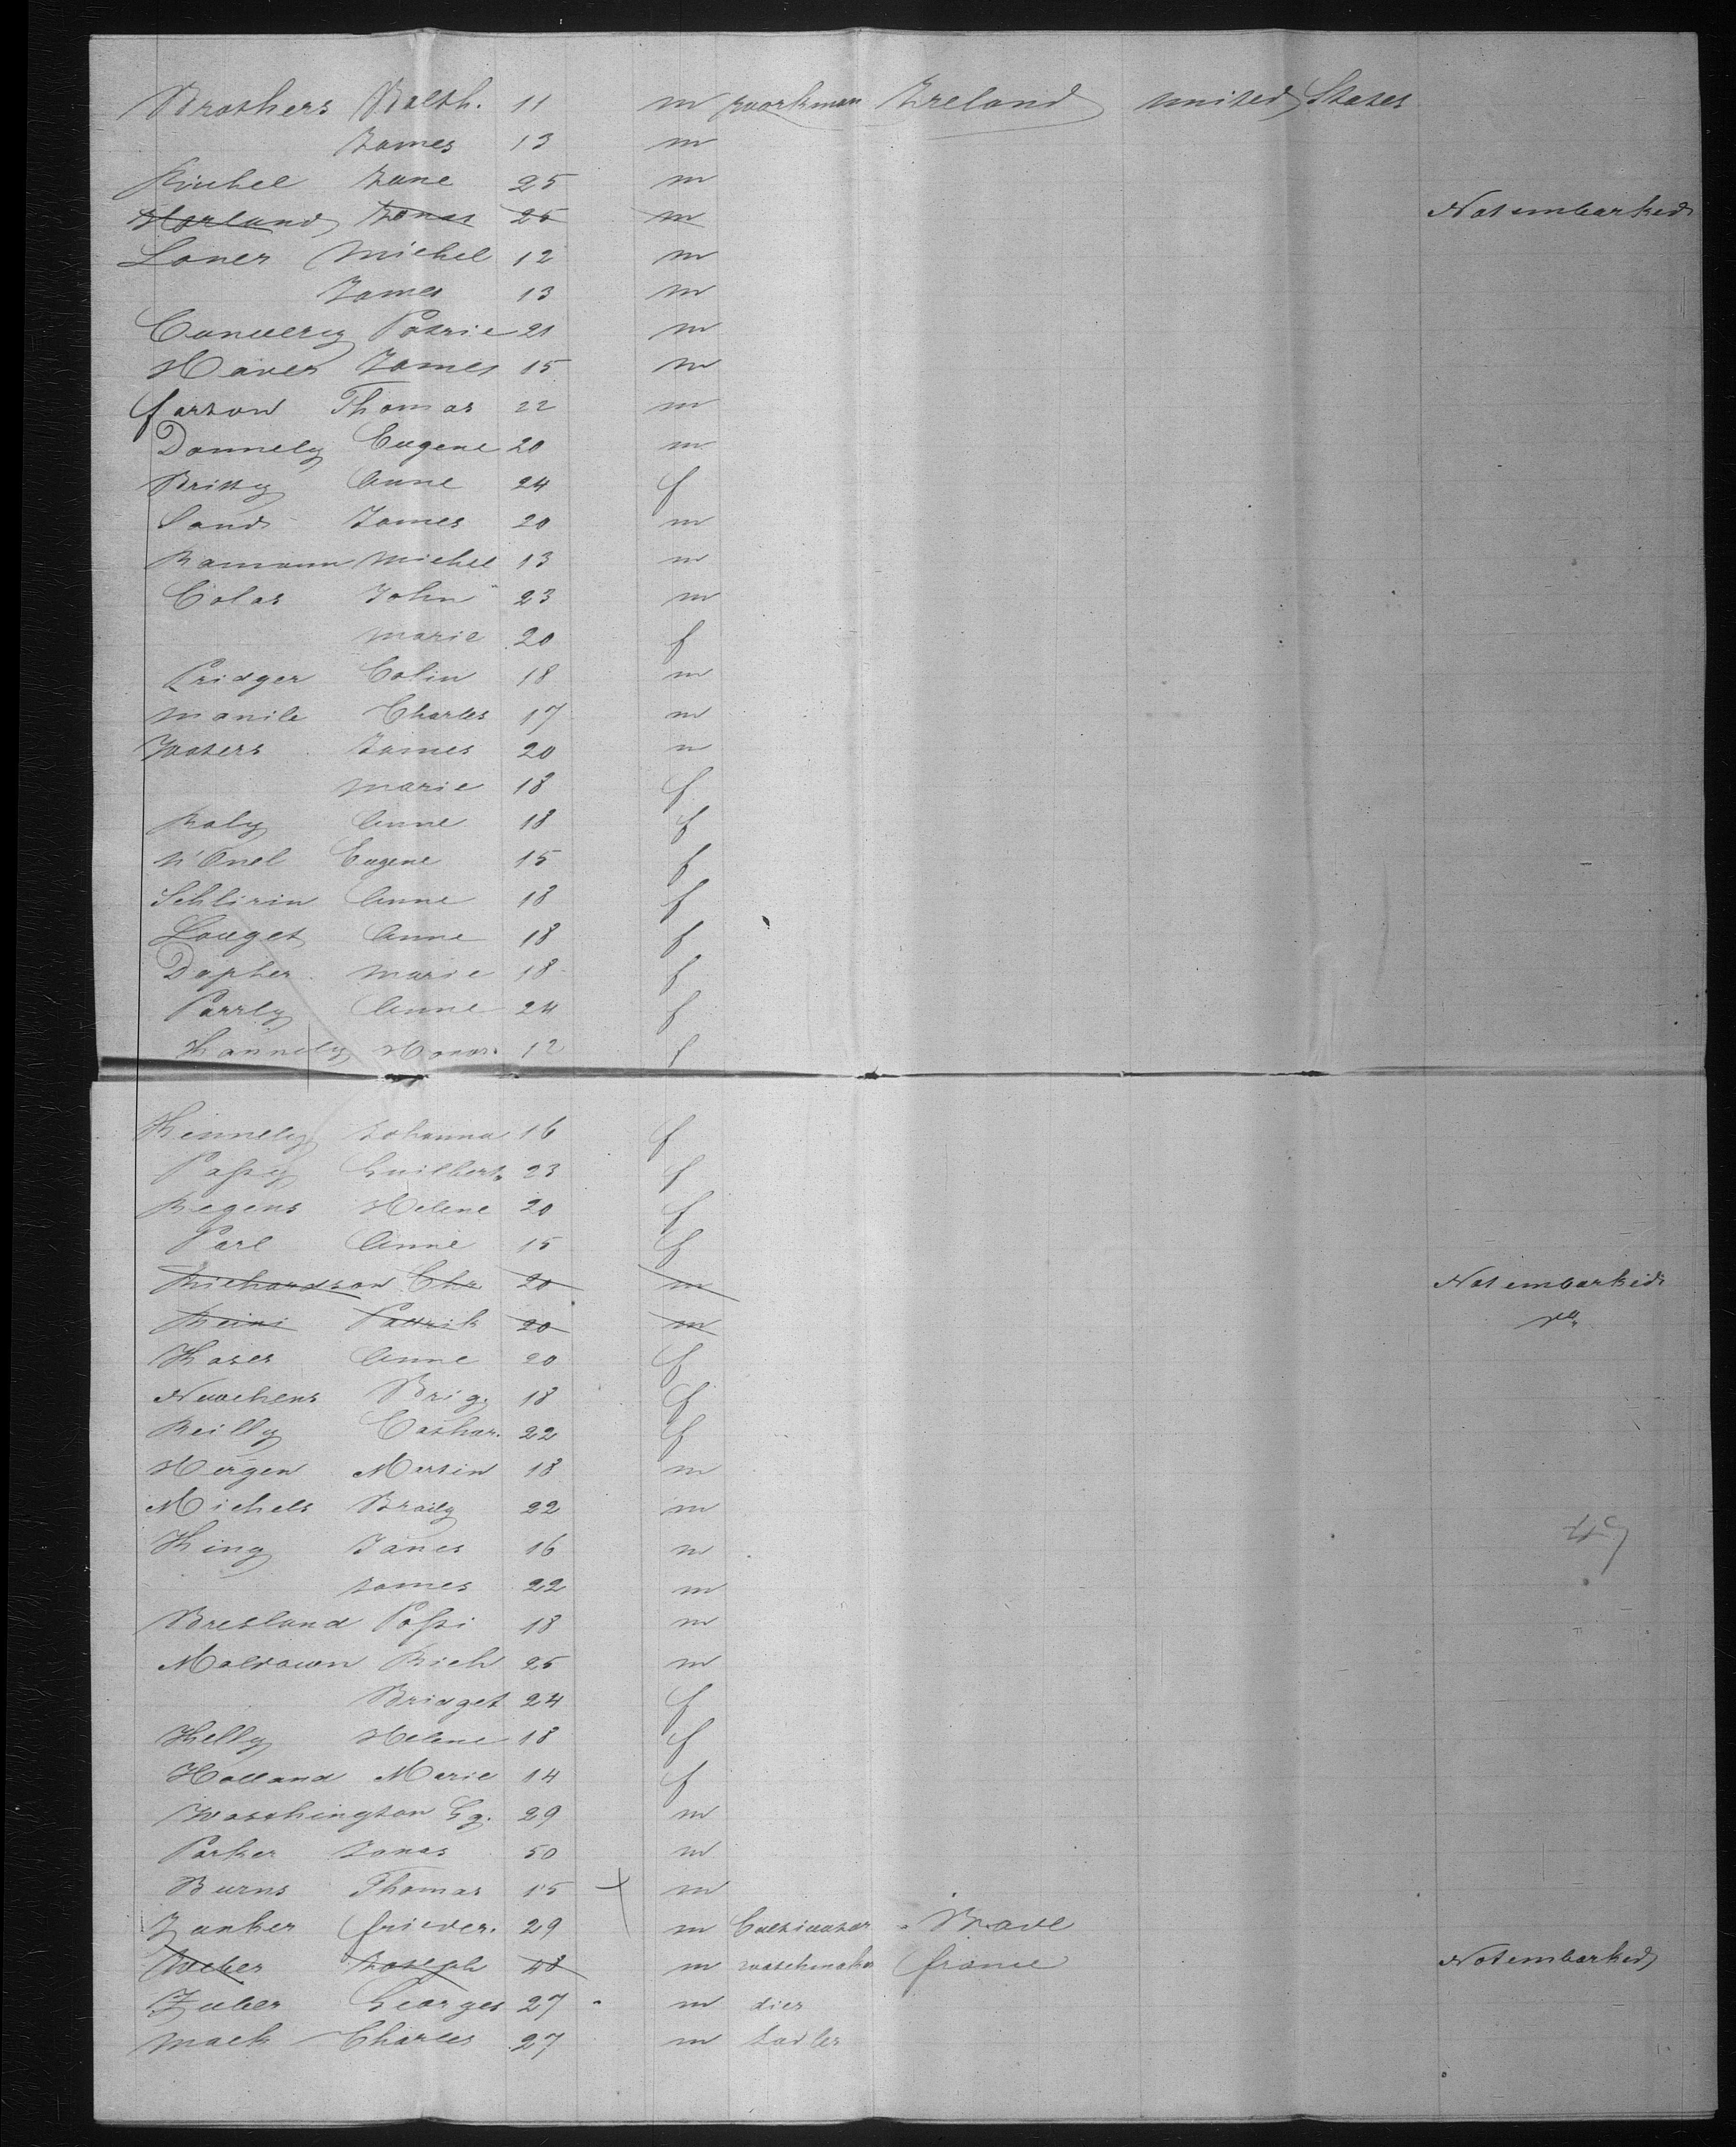 Brothers Balth. 11 m workman Ireland united States
James 13 m
Rinhel Jane 25 m
Morland Jonas 25 m Not embarked
Loner Michel 12 m
James 13 m
Conwery Patric 21 m
Haver James 15 m
farson Thomas 22 m
Donnely Eugene 20 m
Britty Anne 24 f
Sand James 20 m
Ramann Michel 13 m
Colas John 23 m
Marie 20 f
Pridger Colin 18 m
Manile Charles 17 m
Waters James 20 m
Marie 18 f
Raly Anne 18 f
n'Onel Eugene 15 f
Schlirin Anne 18 f
Louget Anne 18 f
Dapher Marie 18 f
Parrly Anne 24 f
Kannely Honor. 12 f
Kennely Johanna 16 f
Passy Guilbert. 23 f
Regens Helene 20 f
Parl Anne 15 f
Richardson Chr 20 m Not embarked
Patrik 20 m
Kases Anne 20 f
Nuvehens Brig. 18 f
Reilly Cathar. 22 f
Hergen Martin 18 m
Michels Braily 22 m
King Janes 16 m
James 22 m
Bresland Possi 18 m
Moldown Rich 25 m
Bridget 24 f
Kelly Helene 18 f
Holland Marie 14 f
Waschington Gg. 29 m
Parker Jonas 50 m
Burns Thomas 15 m
Zanker frieder. 29 m Cultivator Bade
Weber Joseph 48 m waschmaker france Not embarked
Zuber Georges 27 m dier
Mack Charles 27 m Sadler